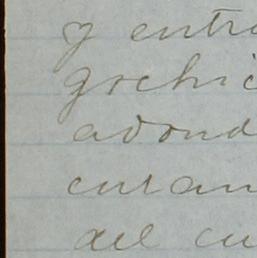 y entr
gochi
adond
curan
del cu